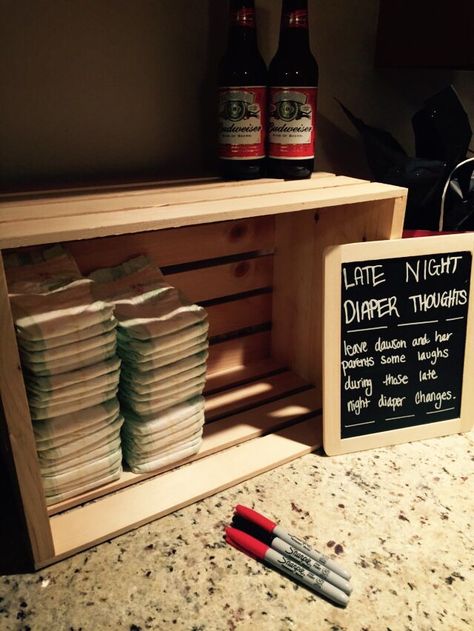 Budweiser
KING OF BEERS
Budweiser
KING OF BEERS
LATE NIGHT
DIAPER THOUGHTS
leave dawson and her
parents some laughs
during those late
night diaper changes.
Sharpie
Sharpie